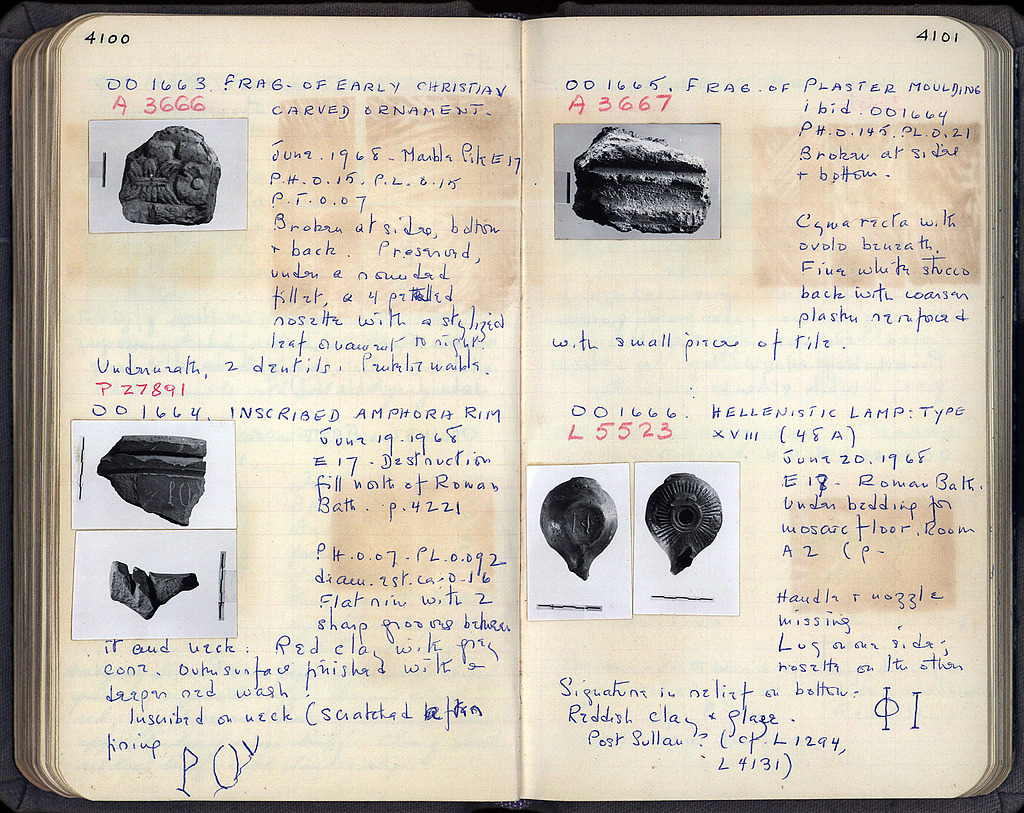 4100
OO 1663. FRAG. OF EARLY CHRISTIAN
A 3666 CARVED ORNAMENT.
June. 1968 - Marble Pile E 17
P.H. 0.15. P.L. 0.15
P.T. 0.07
Broken at sides, bottom
+ back. Preserved,
under a rounded
fillet, a 4 petalled
rosette with a stylized
leaf ornament to right.
Underneath, 2 dentils. Pentelic marble.
P 27891
OO 1664. INSCRIBED AMPHORA RIM
June 19. 1968
E 17 - Destruction
fill north of Roman
Bath. p. 4221
P.H. 0.07 - PL. 0.092
diam. est. ca. 0.16
Flat rim with 2
sharp grooves between
it and neck. Red clay with grey
core. Outer surface finished with a
deeper red wash.
Inscribed on neck (scratched after
firing
ΡΟΥ
4101
OO 1665. FRAG. OF PLASTER MOULDING
A 3667 ibid. OO1664
PH. 0.145. PL. 0.21
Broken at sides
+ bottom.
Cyma recta with
ovolo beneath.
Fine white stucco
back with coarser
plaster reinforced
with small pieces of tile.
OO 1666. HELLENISTIC LAMP: TYPE
L 5523 XVIII (48A)
June 20. 1968
E 17 - Roman Bath.
Under bedding for
mosaic floor. Room
A 2 (p -
Handle + nozzle
missing
Lug on one side;
rosette on the other
Signature in relief on bottom: ΦΙ
Reddish clay + glaze.
Post Sullan? (cf. L 1294,
L 4131)